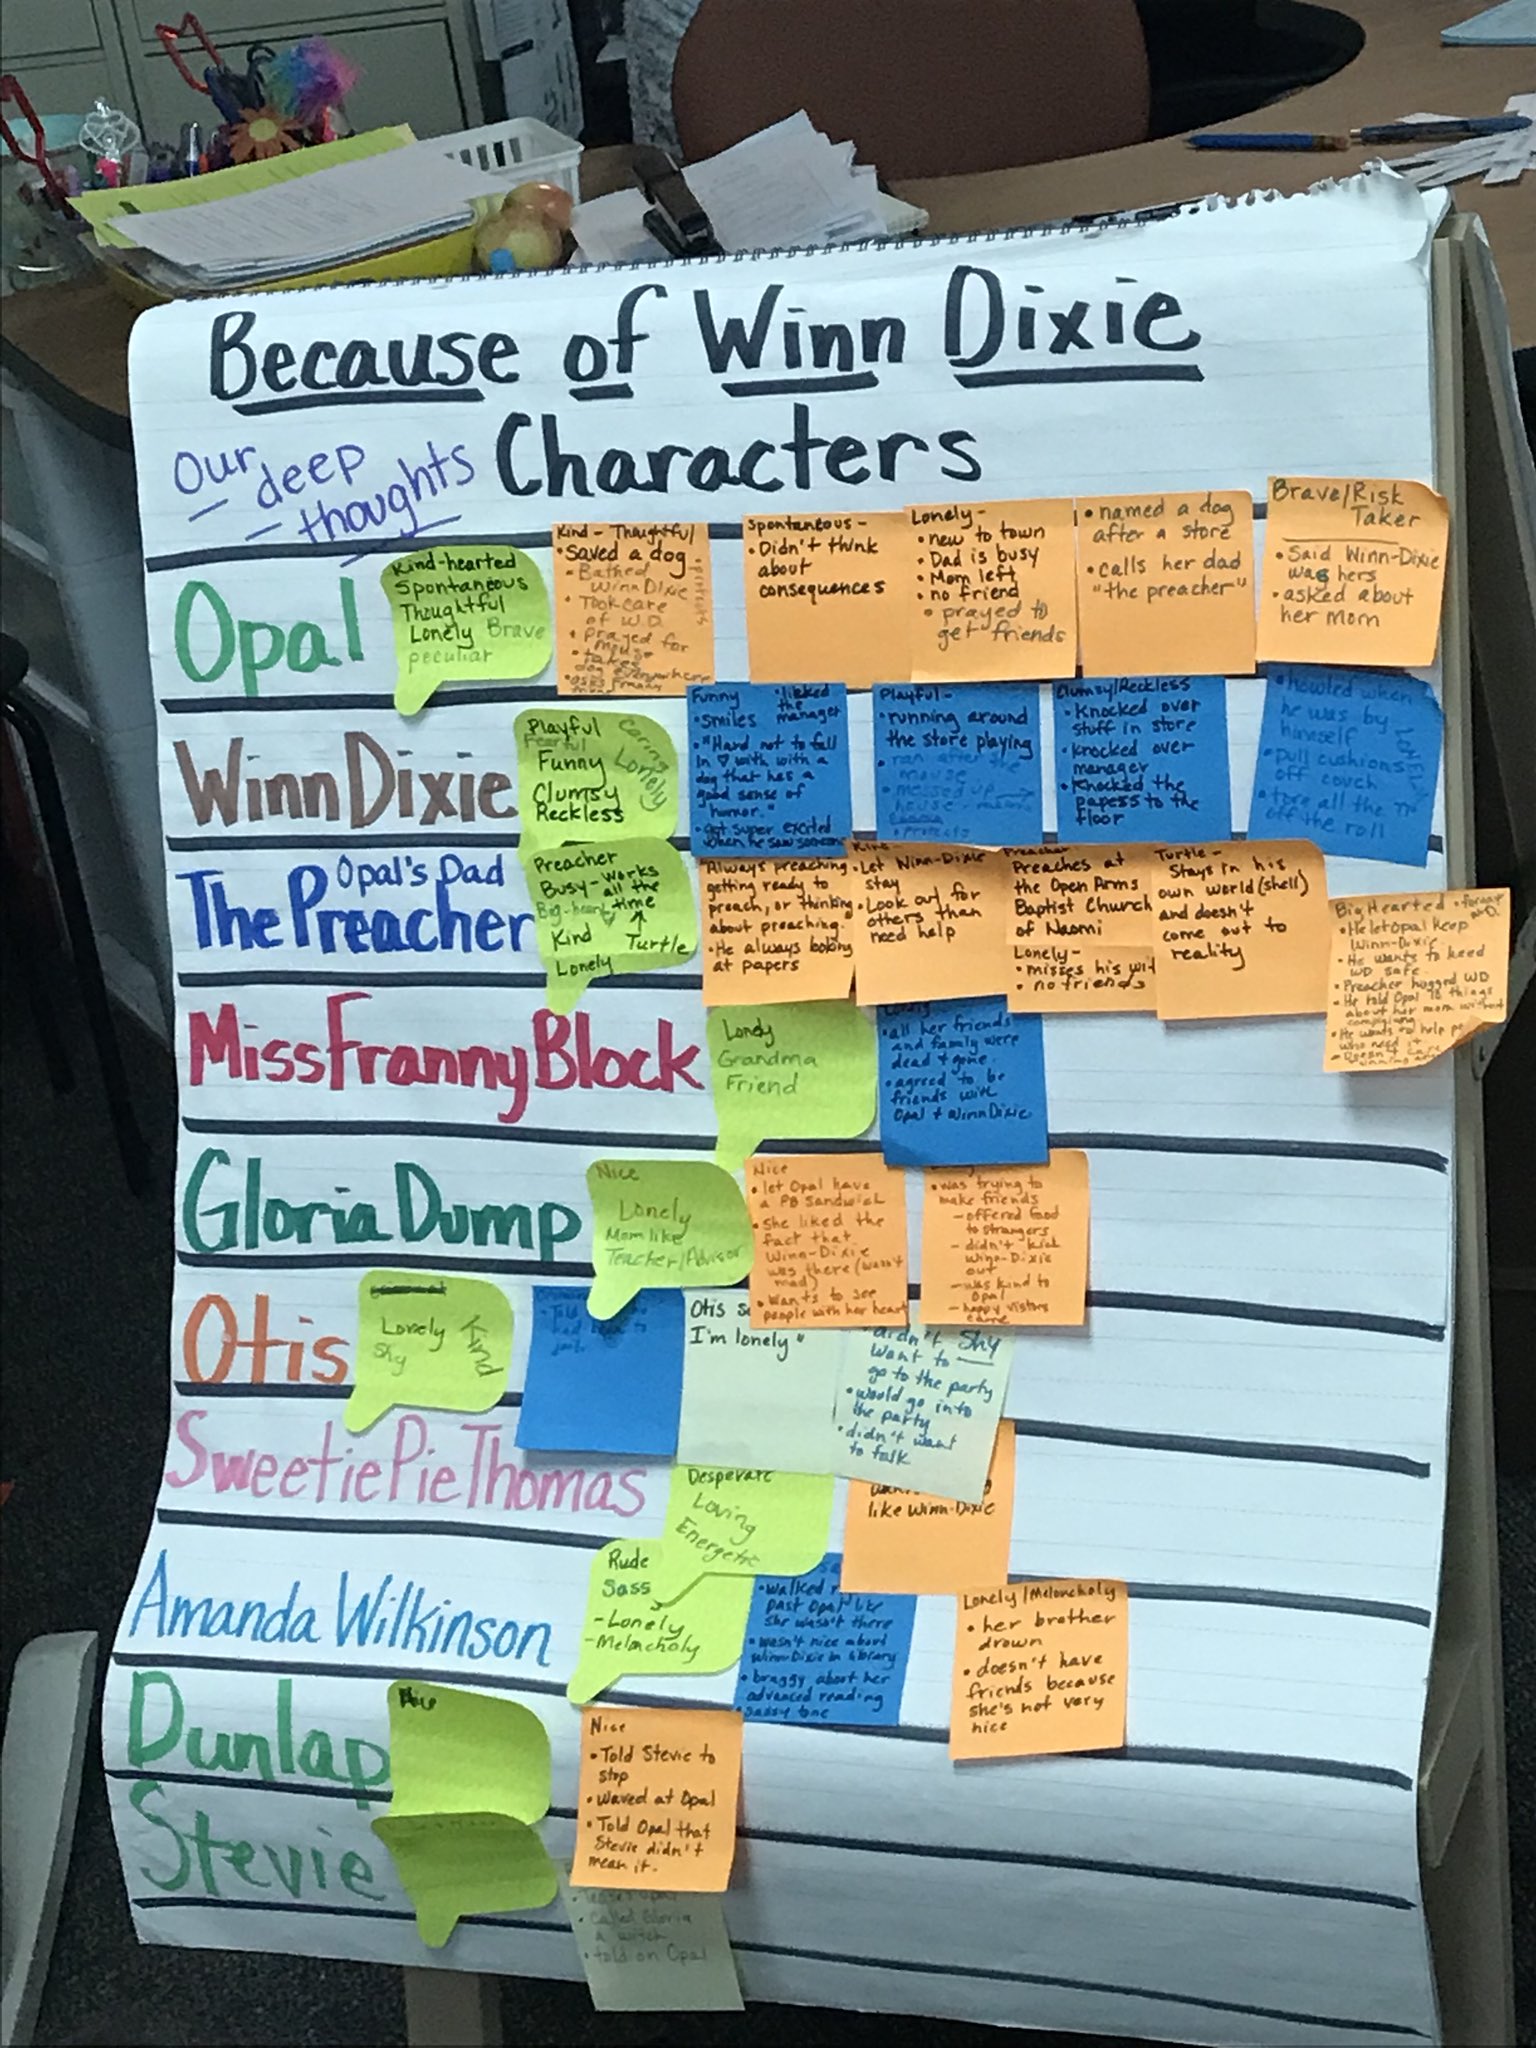 Because of Winn Dixie
Our
deep
thoughts
Characters
Opal
Kind-hearted
Spontaneous
Thoughtful
Lonely Brave
peculiar
Kind - Thoughtful
• Saved a dog
• Bathed
Winn Dixie
• Took care
of W.D.
• Prayed for
mouse
• takes
dog everywhere
Spontaneous -
• Didn't think
about
consequences
Lonely -
• new to town
• Dad is busy
• Mom left
• no friend
• prayed to
get friends
• named a dog
after a store
• calls her dad
"the preacher"
Brave/Risk
Taker
• Said Winn-Dixie
was hers
• asked about
her mom
WinnDixie
Playful
Fearful
Funny
Clumsy
Reckless
Caring
Lonely
Funny
• licked
the
manager
• smiles
• "Hard not to fall
in ♡ with with a
dog that has a
good sense of
humor."
• Get super excited
when he saw someone
Playful -
• running around
the store playing
• ran after the
mouse
• messed up
house
• Protects
Clumsy/Reckless
• Knocked over
stuff in store
• knocked over
manager
• Knocked the
papess to the
floor
• howled when
he was by
himself
• pull cushions
off couch
• tore all the TP
off the roll
LONELY
Opal's Dad
The Preacher
Preacher
Busy - works
all the
time
Big-heart
Kind
Turtle
Lonely
Always preaching
getting ready to
preach, or thinking
about preaching.
• He always looking
at papers
Kind -
• Let Winn-Dixie
stay
• Look out for
others than
need help
Preacher
Preaches at
the Open Arms
Baptist Church
of Naomi
Lonely -
• misses his wif
• no friends
Turtle -
Stays in his
own world (shell)
and doesn't
come out to
reality
Big Hearted
• He let Opal keep
Winn-Dixie
• He wants to keed
WD safe.
• Preacher hugged WD
• He told Opal 10 things
about her mom without
• He wants to help pe
who need it
Miss Franny Block
Lonely
Grandma
Friend
Lonely
• all her friends
and family were
dead & gone.
• agreed to be
friends with
Opal & WinnDixie
Gloria Dump
Nice
Lonely
Mom like
Teacher/Advisor
Nice
• let Opal have
a PB sandwich
• She liked the
fact that
Winn-Dixie
was there (wasn't
mad)
• Wants to see
people with her heart
• was trying to
make friends
- offered food
to strangers
- didn't kick
Winn-Dixie
out
- was kind to
Opal
- happy vistors
came
Otis
Lonely
Shy
Kind
• Told
Otis s
I'm lonely"
Shy
• didn't
want to
go to the party
• would go into
the party
• didn't want
to talk
SweetiePieThomas
Desperate
Loving
Energetic
like Winn-Dixie
Amanda Wilkinson
Rude
Sass
- Lonely
- Melacholy
• walked
past Opal like
she wasn't there
• wasn't nice about
Winn-Dixie in library
• braggy about her
advanced reading
• sassy tone
Lonely/Meloncholy
• her brother
drown
• doesn't have
friends because
she's not very
nice
Dunlap
Nice
Nice
• Told Stevie to
stop
• waved at Opal
• Told Opal that
Stevie didn't
mean it.
Stevie
• Teases Opal
• Called Gloria
a witch
• told on Opal